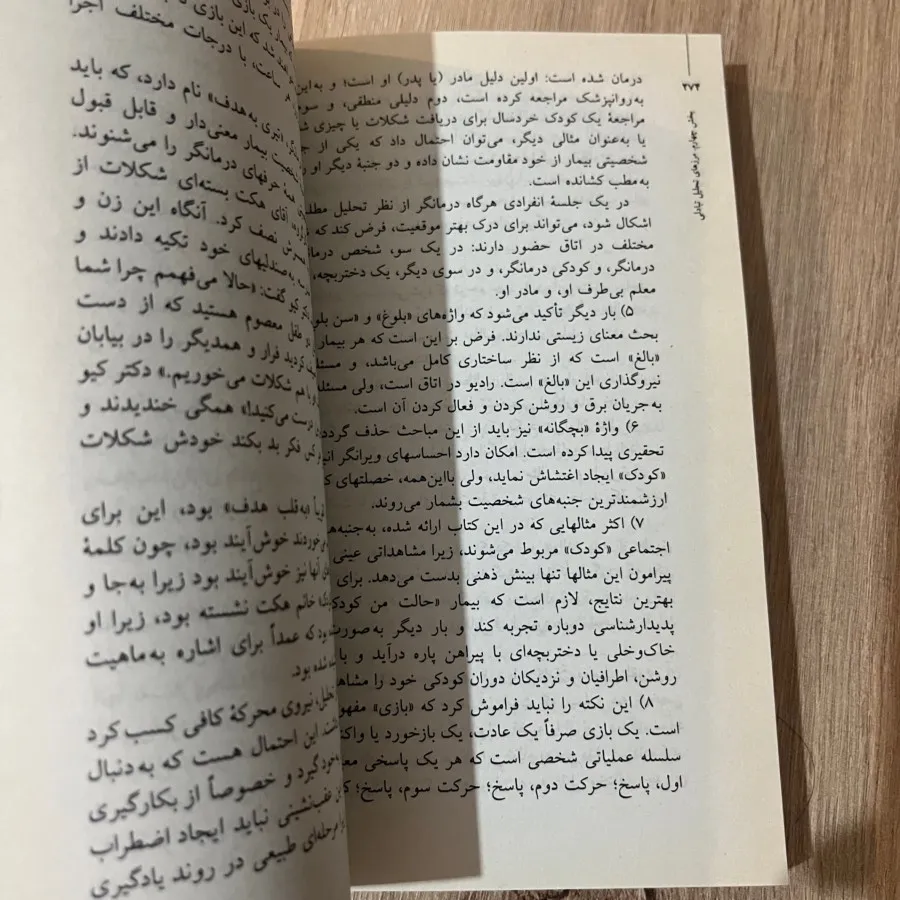 ۲۷۴
بخش چهارم. مرزهای تحلیل تبادلی
درمان شده است: اولین دلیل مادر (یا پدر) او است؛ و به‌این
به‌روانپزشک مراجعه کرده است، دوم دلیلی منطقی، و سوم
مراجعهٔ یک کودک خردسال برای دریافت شکلات یا چیزی
یا به‌عنوان مثالی دیگر، می‌توان احتمال داد که یکی از
شخصیتی بیمار از خود مقاومت نشان داده و دو جنبهٔ دیگر او
به‌مطب کشانده است.
در یک جلسهٔ انفرادی هرگاه درمانگر از نظر تحلیل
اشکال شود، می‌تواند برای درک بهتر موقعیت، فرض کند که
مختلف در اتاق حضور دارند: در یک سو، شخص
درمانگر، و کودکی درمانگر، و در سوی دیگر، یک دختربچه،
معلم بی‌طرف او، و مادر او.
۵) بار دیگر تأکید می‌شود که واژه‌های «بلوغ» و «سن
بحث معنای زیستی ندارند. فرض بر این است که هر بیمار
«بالغ» است که از نظر ساختاری کامل می‌باشد، و
نیروگذاری این «بالغ» است. رادیو در اتاق است، ولی
به‌جریان برق و روشن کردن و فعال کردن آن است.
۶) واژهٔ «بچگانه» نیز باید از این مباحث حذف گردد
تحقیری پیدا کرده است. امکان دارد احساسهای ویرانگر
«کودک» ایجاد اغتشاش نماید، ولی بااین‌همه، خصلتهای
ارزشمندترین جنبه‌های شخصیت بشمار می‌روند.
۷) اکثر مثالهایی که در این کتاب ارائه شده، به‌جنبه
اجتماعی «کودک» مربوط می‌شوند، زیرا مشاهداتی عینی
پیرامون این مثالها تنها بینش ذهنی بدست می‌دهد. برای
بهترین نتایج، لازم است که بیمار «حالت من کودک
پدیدارشناسی دوباره تجربه کند و بار دیگر به‌صورت
خاک‌وخلی یا دختربچه‌ای با پیراهن پاره درآید و با
روشن، اطرافیان و نزدیکان دوران کودکی خود را
۸) این نکته را نباید فراموش کرد که «بازی»
است. یک بازی صرفاً یک عادت، یک بازخورد یا
سلسله عملیاتی شخصی است که هر یک پاسخی
اول، پاسخ؛ حرکت دوم، پاسخ؛ حرکت سوم، پاسخ؛
یک بازی
شد که این بازی
ساعت، با درجات مختلف اجرا
«تیری به‌هدف» نام دارد، که باید
شخصیت بیمار معنی‌دار و قابل قبول
همهٔ حرفهای درمانگر را می‌شنوند.
آقای هکت بسته‌ای شکلات از
نصف کرد. آنگاه این زن و
به‌صندلیهای خود تکیه دادند و
کیو گفت: «حالا می‌فهمم چرا شما
طفل معصوم هستید که از دست
کردید فرار و همدیگر را در بیابان
هم شکلات می‌خوریم.» دکتر کیو
می‌کنید!» همگی خندیدند و
کس فکر بد بکند خودش شکلات
«به‌قلب هدف» بود، این برای
خوردند خوش‌آیند بود، چون کلمهٔ
آنها نیز خوش‌آیند بود زیرا به‌جا و
خانم هکت نشسته بود، زیرا او
که عمداً برای اشاره به‌ماهیت
شده بود.
تحلیل، نیروی محرکهٔ کافی کسب کرد
این احتمال هست که به‌دنبال
گیرد و خصوصاً از بکارگیری
عقب‌نشینی نباید ایجاد اضطراب
مرحله‌ای طبیعی در روند یادگیری